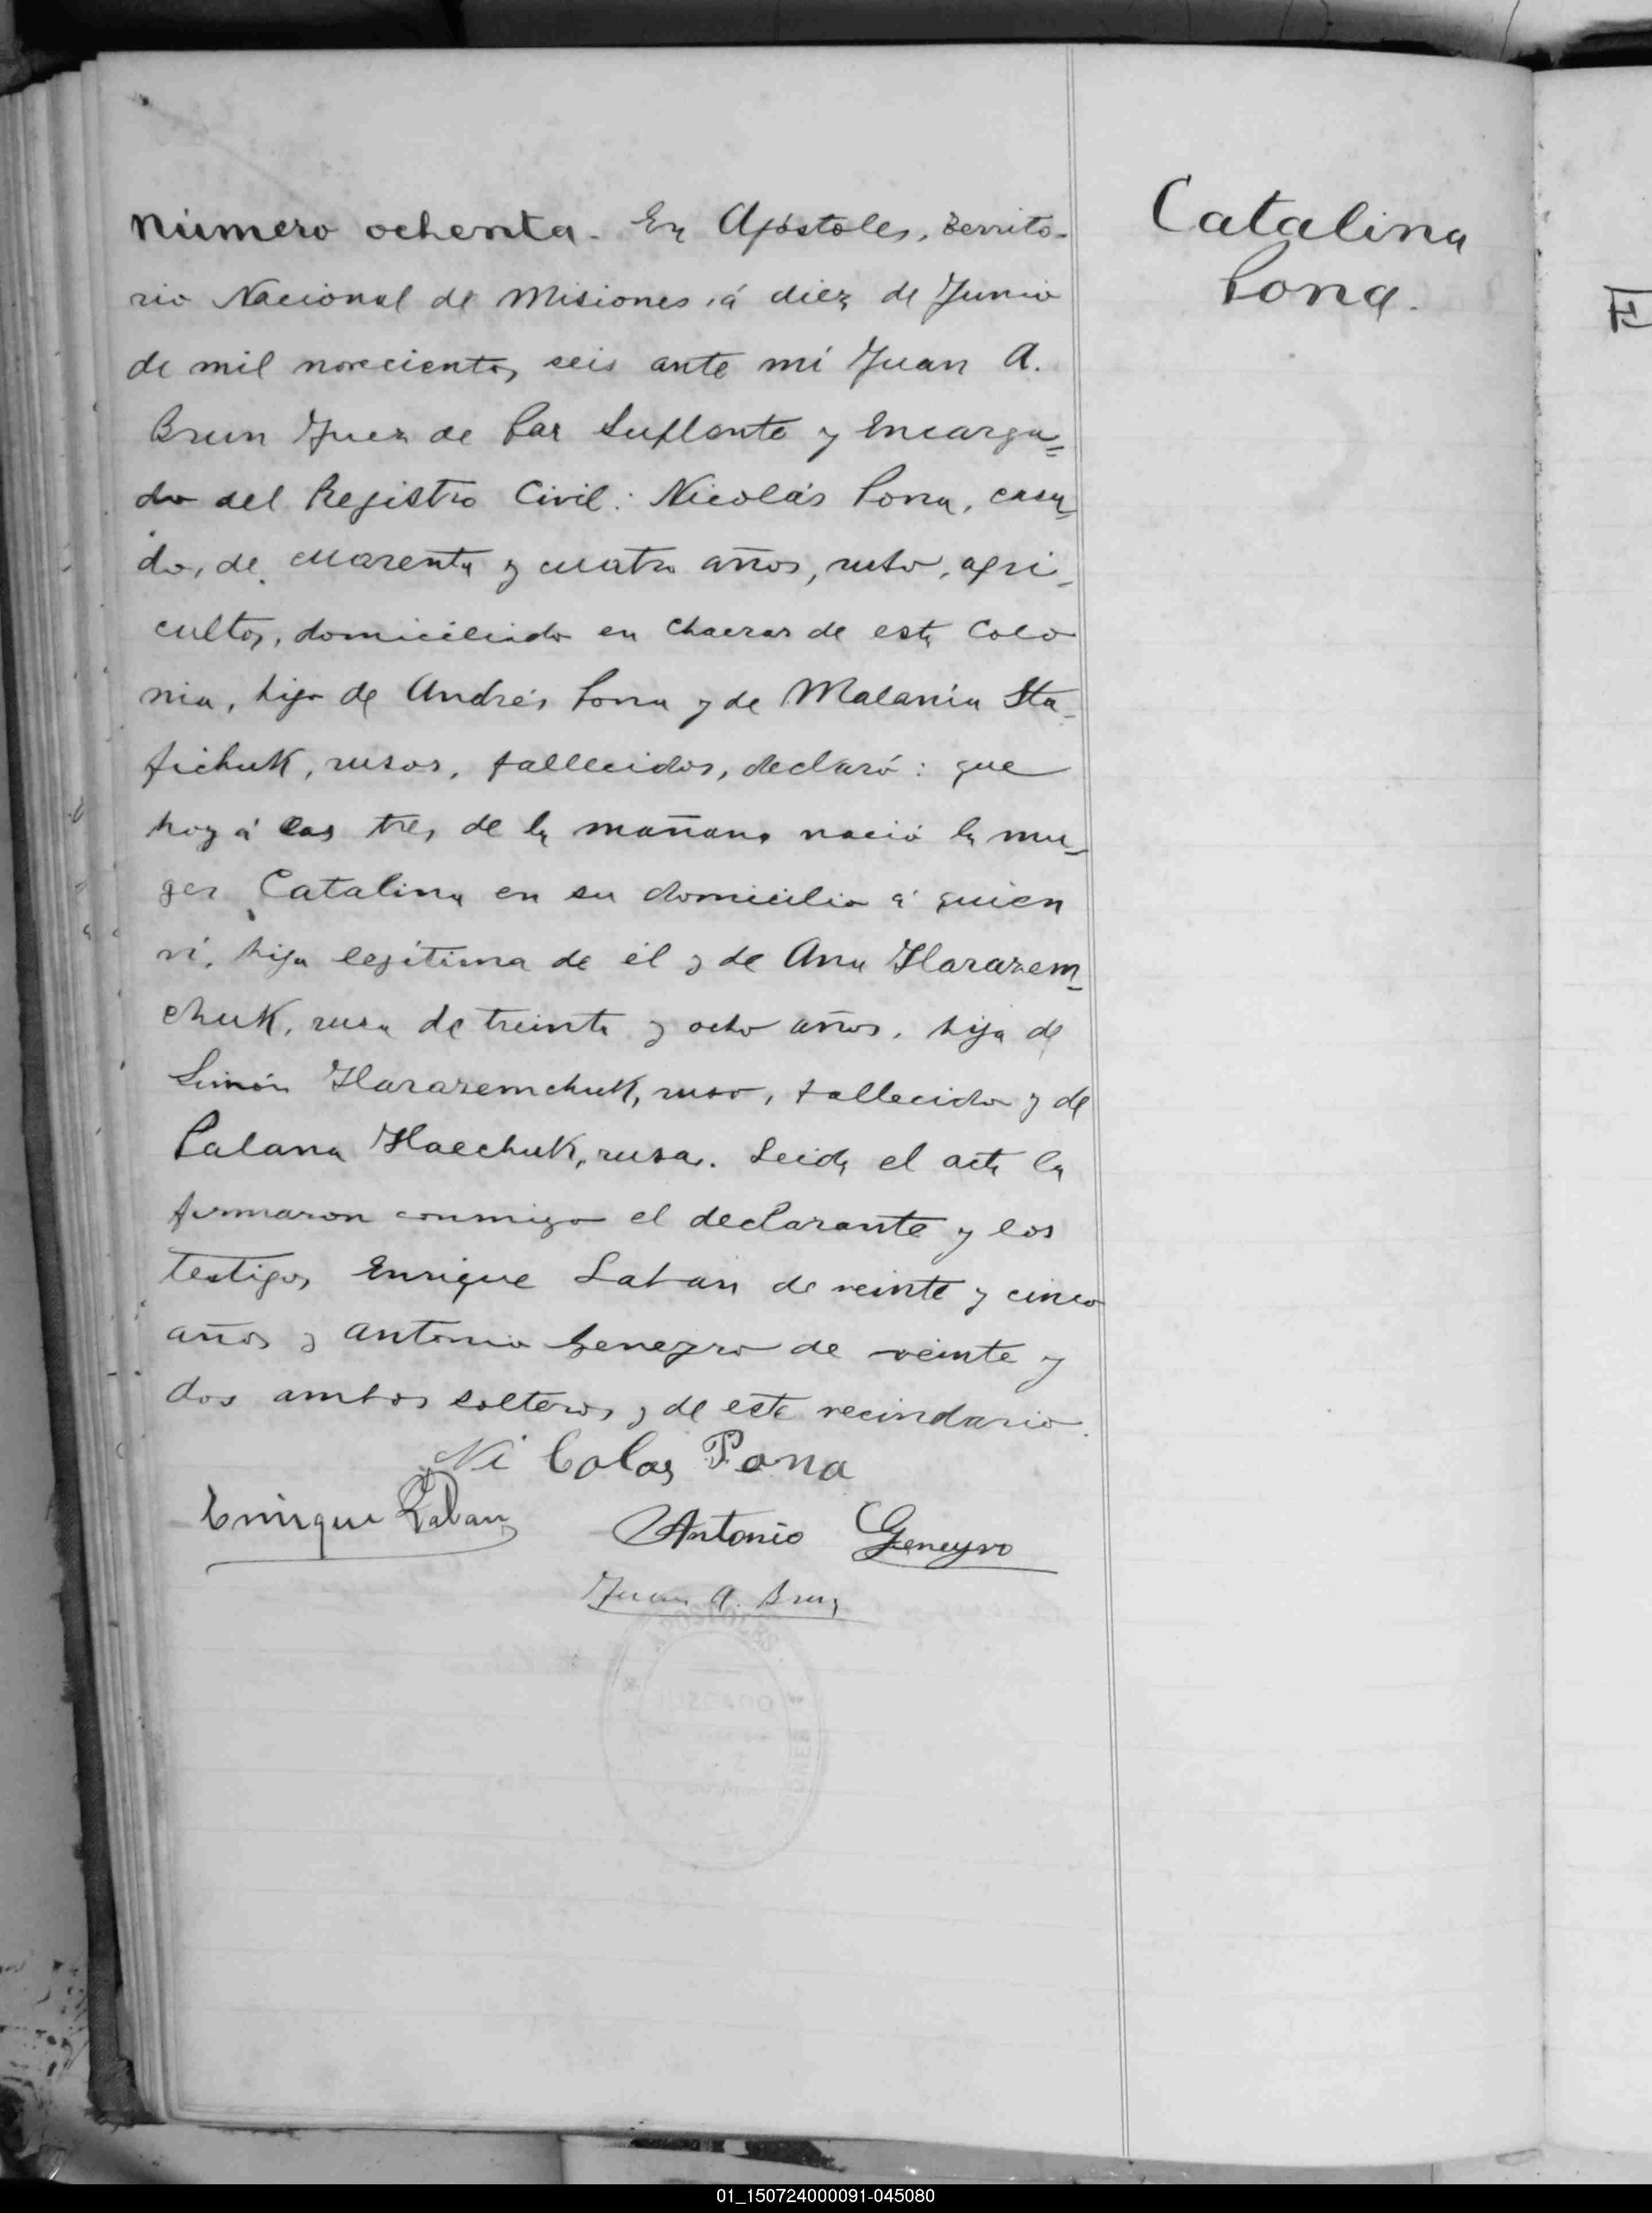 Número ochenta. En Apóstoles, Territo-
rio Nacional de Misiones, á diez de Junio
de mil novecientos seis ante mí Juan A.
Brun Juez de Paz Suplente y Encarga=
do del Registro Civil: Nicolás Pona, casa-
do, de cuarenta y cuatro años, ruso, agri-
cultor, domiciliado en chacras de esta Colo
nia, hijo de Andrés Pona y de Malania Sta-
fichuk, rusos, fallecidos, declaró: que
hoy á las tres de la mañana nació la mu-
ger Catalina en su domicilio á quien
ví, hija legítima de él y de Ana Harasem-
chuk, rusa de treinta y ocho años, hija de
Simón Harasemchuk, ruso, fallecido y de
Palana Haechuk, rusa. Leida el acta la
firmaron conmigo el declarante y los
testigos Enrique Laban de veinte y cinco
años y Antonio Geneyro de veinte y
dos ambos solteros y de este vecindario.
Ni Colas Pona
Enrique Laban Antonio Geneyro
Juan A. Brun
JUZGADO
Catalina
Pona.
01_150724000091-045080